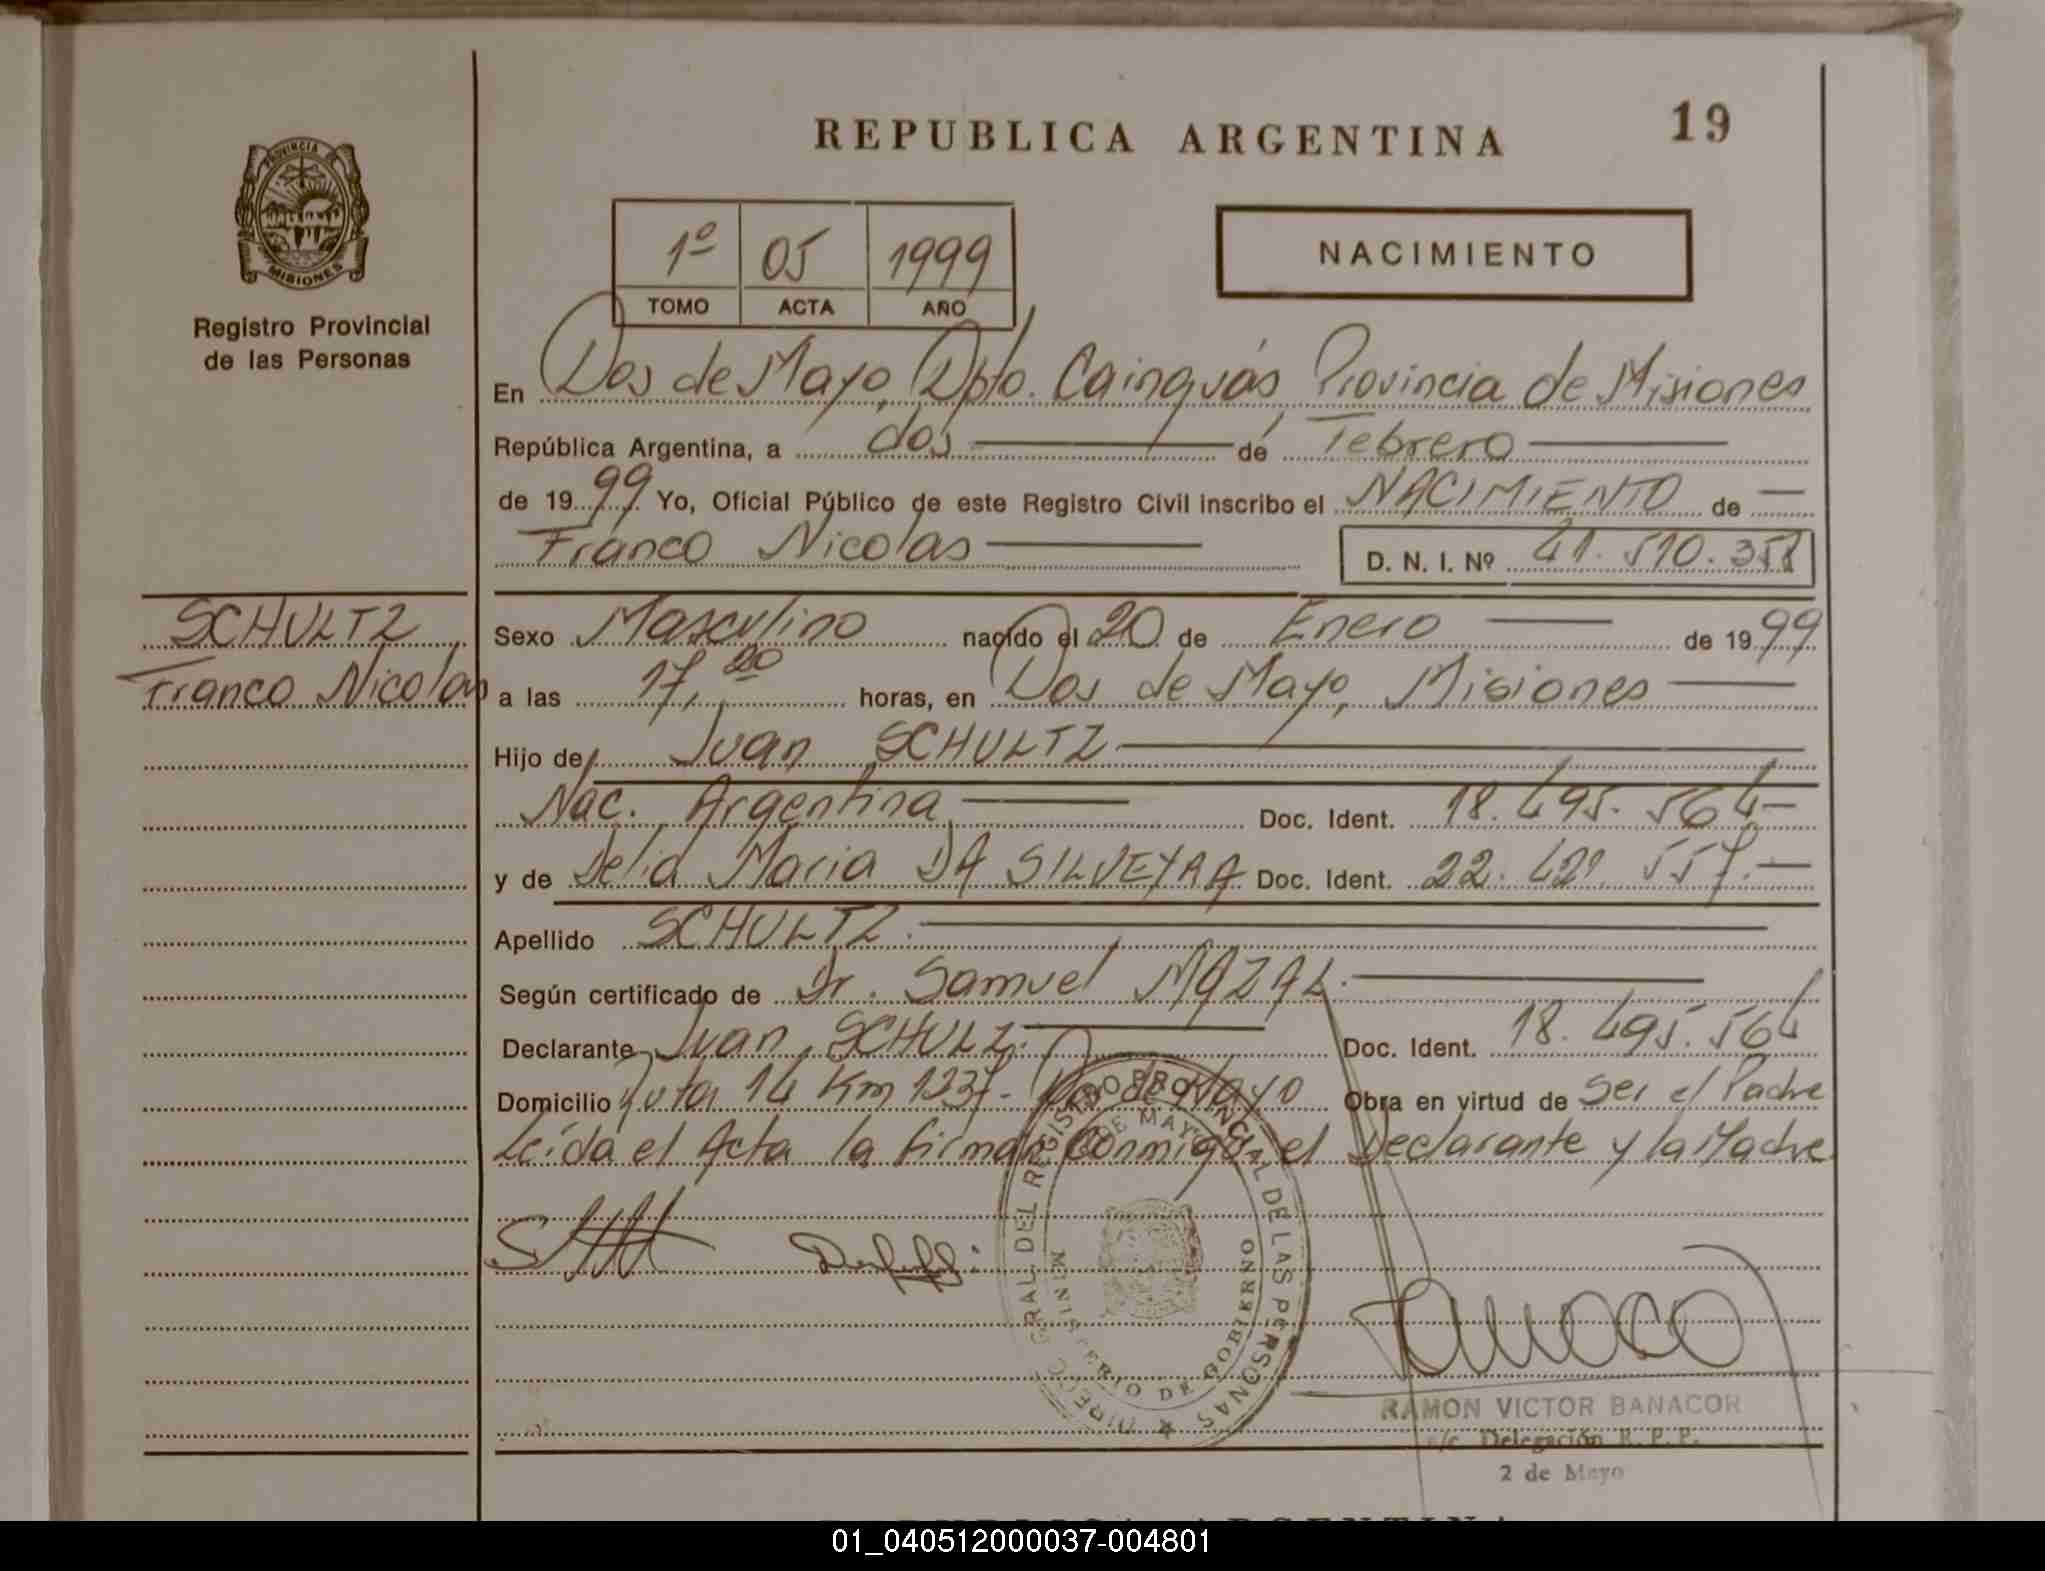 REPUBLICA ARGENTINA
19
PROVINCIA DE
MISIONES
Registro Provincial
de las Personas
1º 05 1999
TOMO ACTA AÑO
NACIMIENTO
En Dos de Mayo, Dpto. Cainguás, Provincia de Misiones
República Argentina, a dos de Febrero
de 1999 Yo, Oficial Público de este Registro Civil inscribo el NACIMIENTO de
Franco Nicolas
D. N. I. Nº 41.510.358
SCHULTZ
Franco Nicolas
Sexo Masculino nacido el 20 de Enero de 1999
a las 17,20 horas, en Dos de Mayo, Misiones
Hijo de Juan SCHULTZ
Nac. Argentina Doc. Ident. 18.495.564
y de Delia Maria DA SILVEYRA Doc. Ident. 22. 557.
Apellido SCHULTZ.
Según certificado de Dr. Samuel MAZAL.
Declarante Juan SCHULZ. Doc. Ident. 18.495.564
Domicilio Ruta 14 Km 1237 - Dos de Mayo Obra en virtud de Ser el Padre
Leída el Acta la firman conmigo, el Declarante y la Madre.
DIRECC. GRAL. DEL REGISTRO PROVINCIAL DE LAS PERSONAS
DE MAYO
MINISTERIO DE GOBIERNO
RAMON VICTOR BANACOR
a/c. Delegación R. P. P.
2 de Mayo
REPUBLICA ARGENTINA
01_040512000037-004801